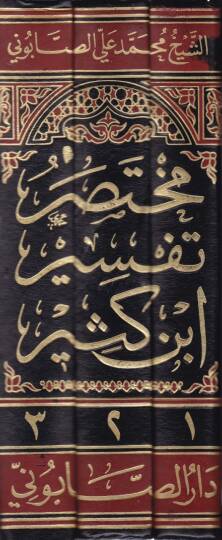 الشيخ محمد علي الصابوني
مختصر
تفسير
ابن كثير
١ ٢ ٣
دار الصابوني